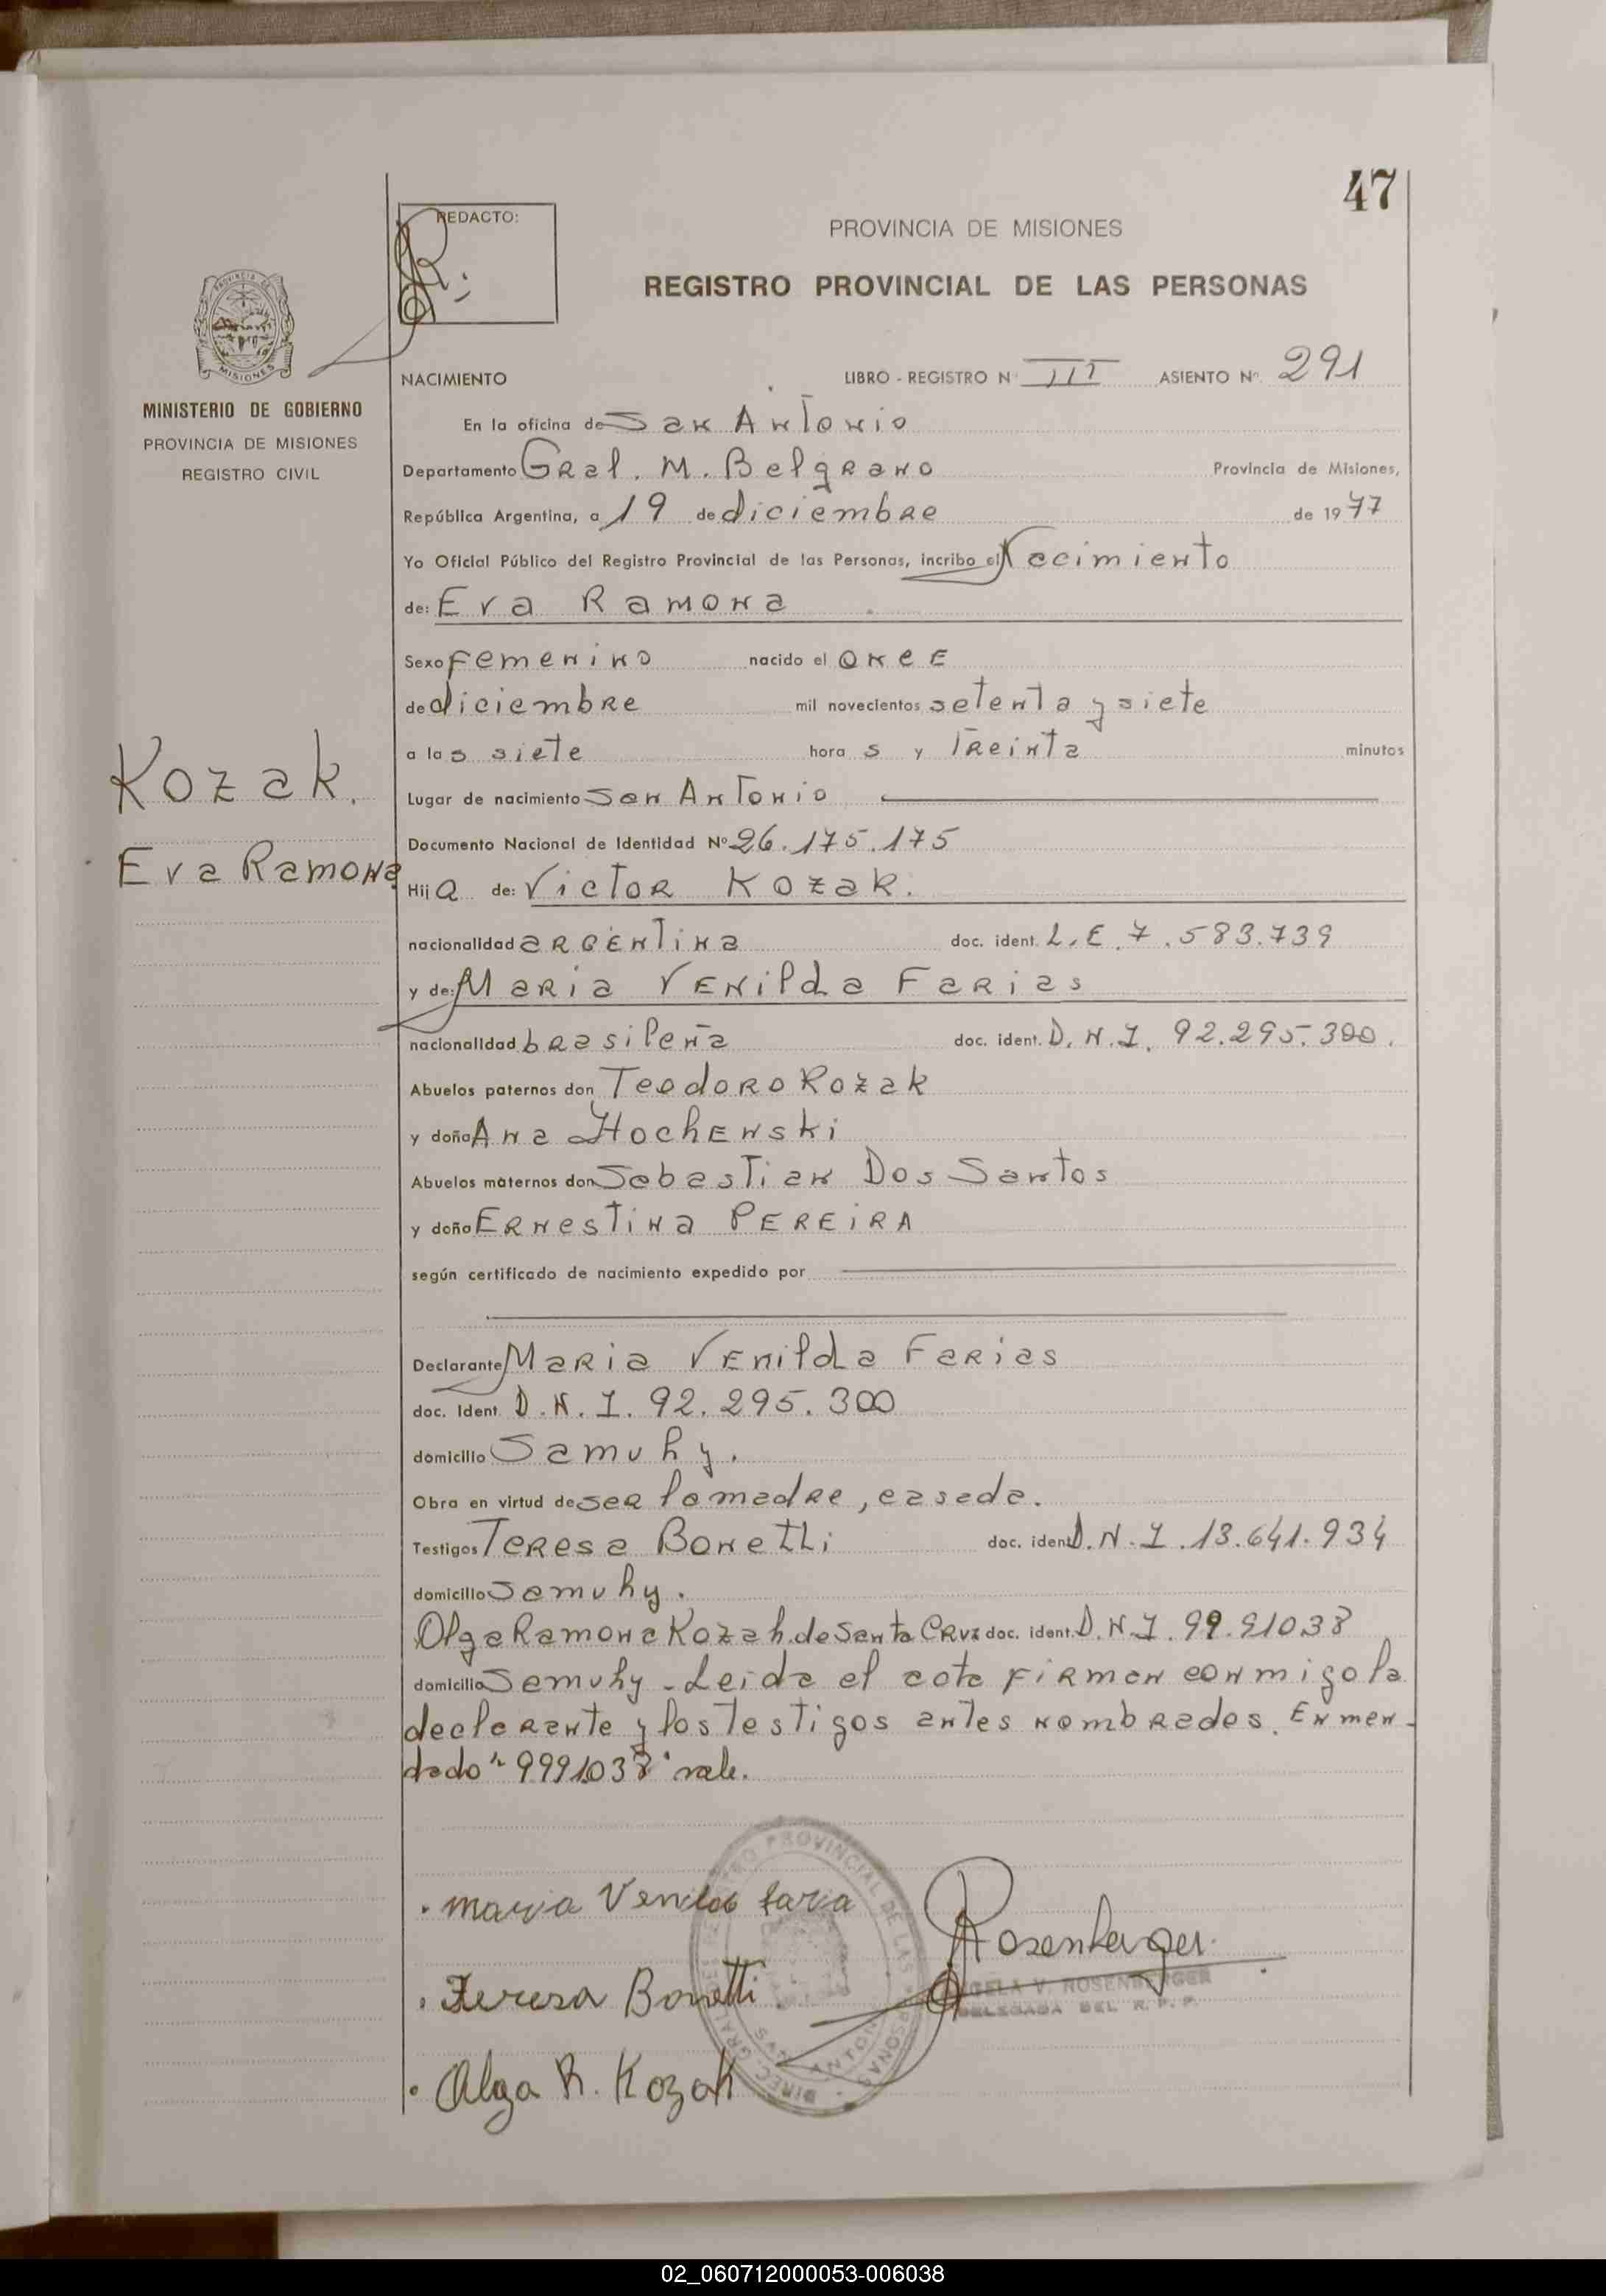 47
REDACTO:
PROVINCIA DE MISIONES
REGISTRO PROVINCIAL DE LAS PERSONAS
PROVINCIA DE
MISIONES
MINISTERIO DE GOBIERNO
PROVINCIA DE MISIONES
REGISTRO CIVIL
NACIMIENTO LIBRO - REGISTRO Nº III ASIENTO Nº. 291
En la oficina de San Antonio
Departamento Gral. M. Belgrano Provincia de Misiones,
República Argentina, a 19 de diciembre de 1977
Yo Oficial Público del Registro Provincial de las Personas, incribo el Nacimiento
de: Eva Ramona
Sexo femenino nacido el once
de diciembre mil novecientos setenta y siete
a las siete hora s y treinta minutos
Kozak.
Eva Ramona
Lugar de nacimiento San Antonio
Documento Nacional de Identidad Nº 26.175.175
Hija de: Victor Kozak.
nacionalidad argentina doc. ident. L.E. 7.583.739
y de: Maria Venilda Farias
nacionalidad brasileña doc. ident. D.N.I. 92.295.300.
Abuelos paternos don Teodoro Kozak
y doña Ana Hochenski
Abuelos maternos don Sebastian Dos Santos
y doña Ernestina Pereira
según certificado de nacimiento expedido por
Declarante Maria Venilda Farias
doc. Ident. D.N.I. 92.295.300
domicilio Samuhy.
Obra en virtud de ser la madre, casada.
Testigos Teresa Bonetti doc. ident. D.N.I. 13.641.934
domicilio Samuhy.
Olga Ramona Kozak de Santa Cruz doc. ident. D.N.I. 99.91038
domicilio Samuhy - Leida el acta firman conmigo la
declarante y los testigos antes nombrados. Enmen-
dado "9991.038" vale.
. maria Venilda faria
Rosenberger
. Teresa Bonetti
ANGELA V. ROSENBERGER
DELEGADA DEL R. P. P.
. Olga R. Kozak
02_060712000053-006038